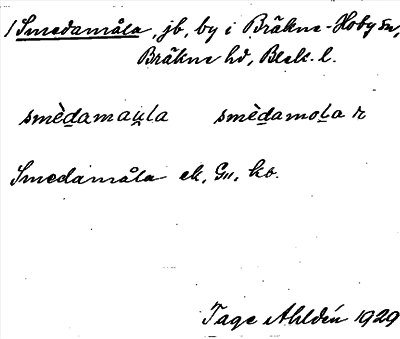 1 Smedamåla, jb, by i Bräkne-Hoby sn,
Bräkne hd, Blek. l.
smèdamau̯la smèdamola r
Smedamåla ek, Gs, ko.
Tage Ahldén 1929